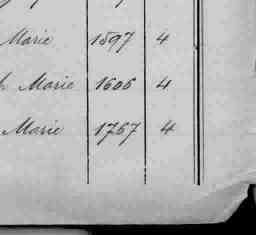 Marie 1597 4
h Marie 1605 4
Marie 1757 4